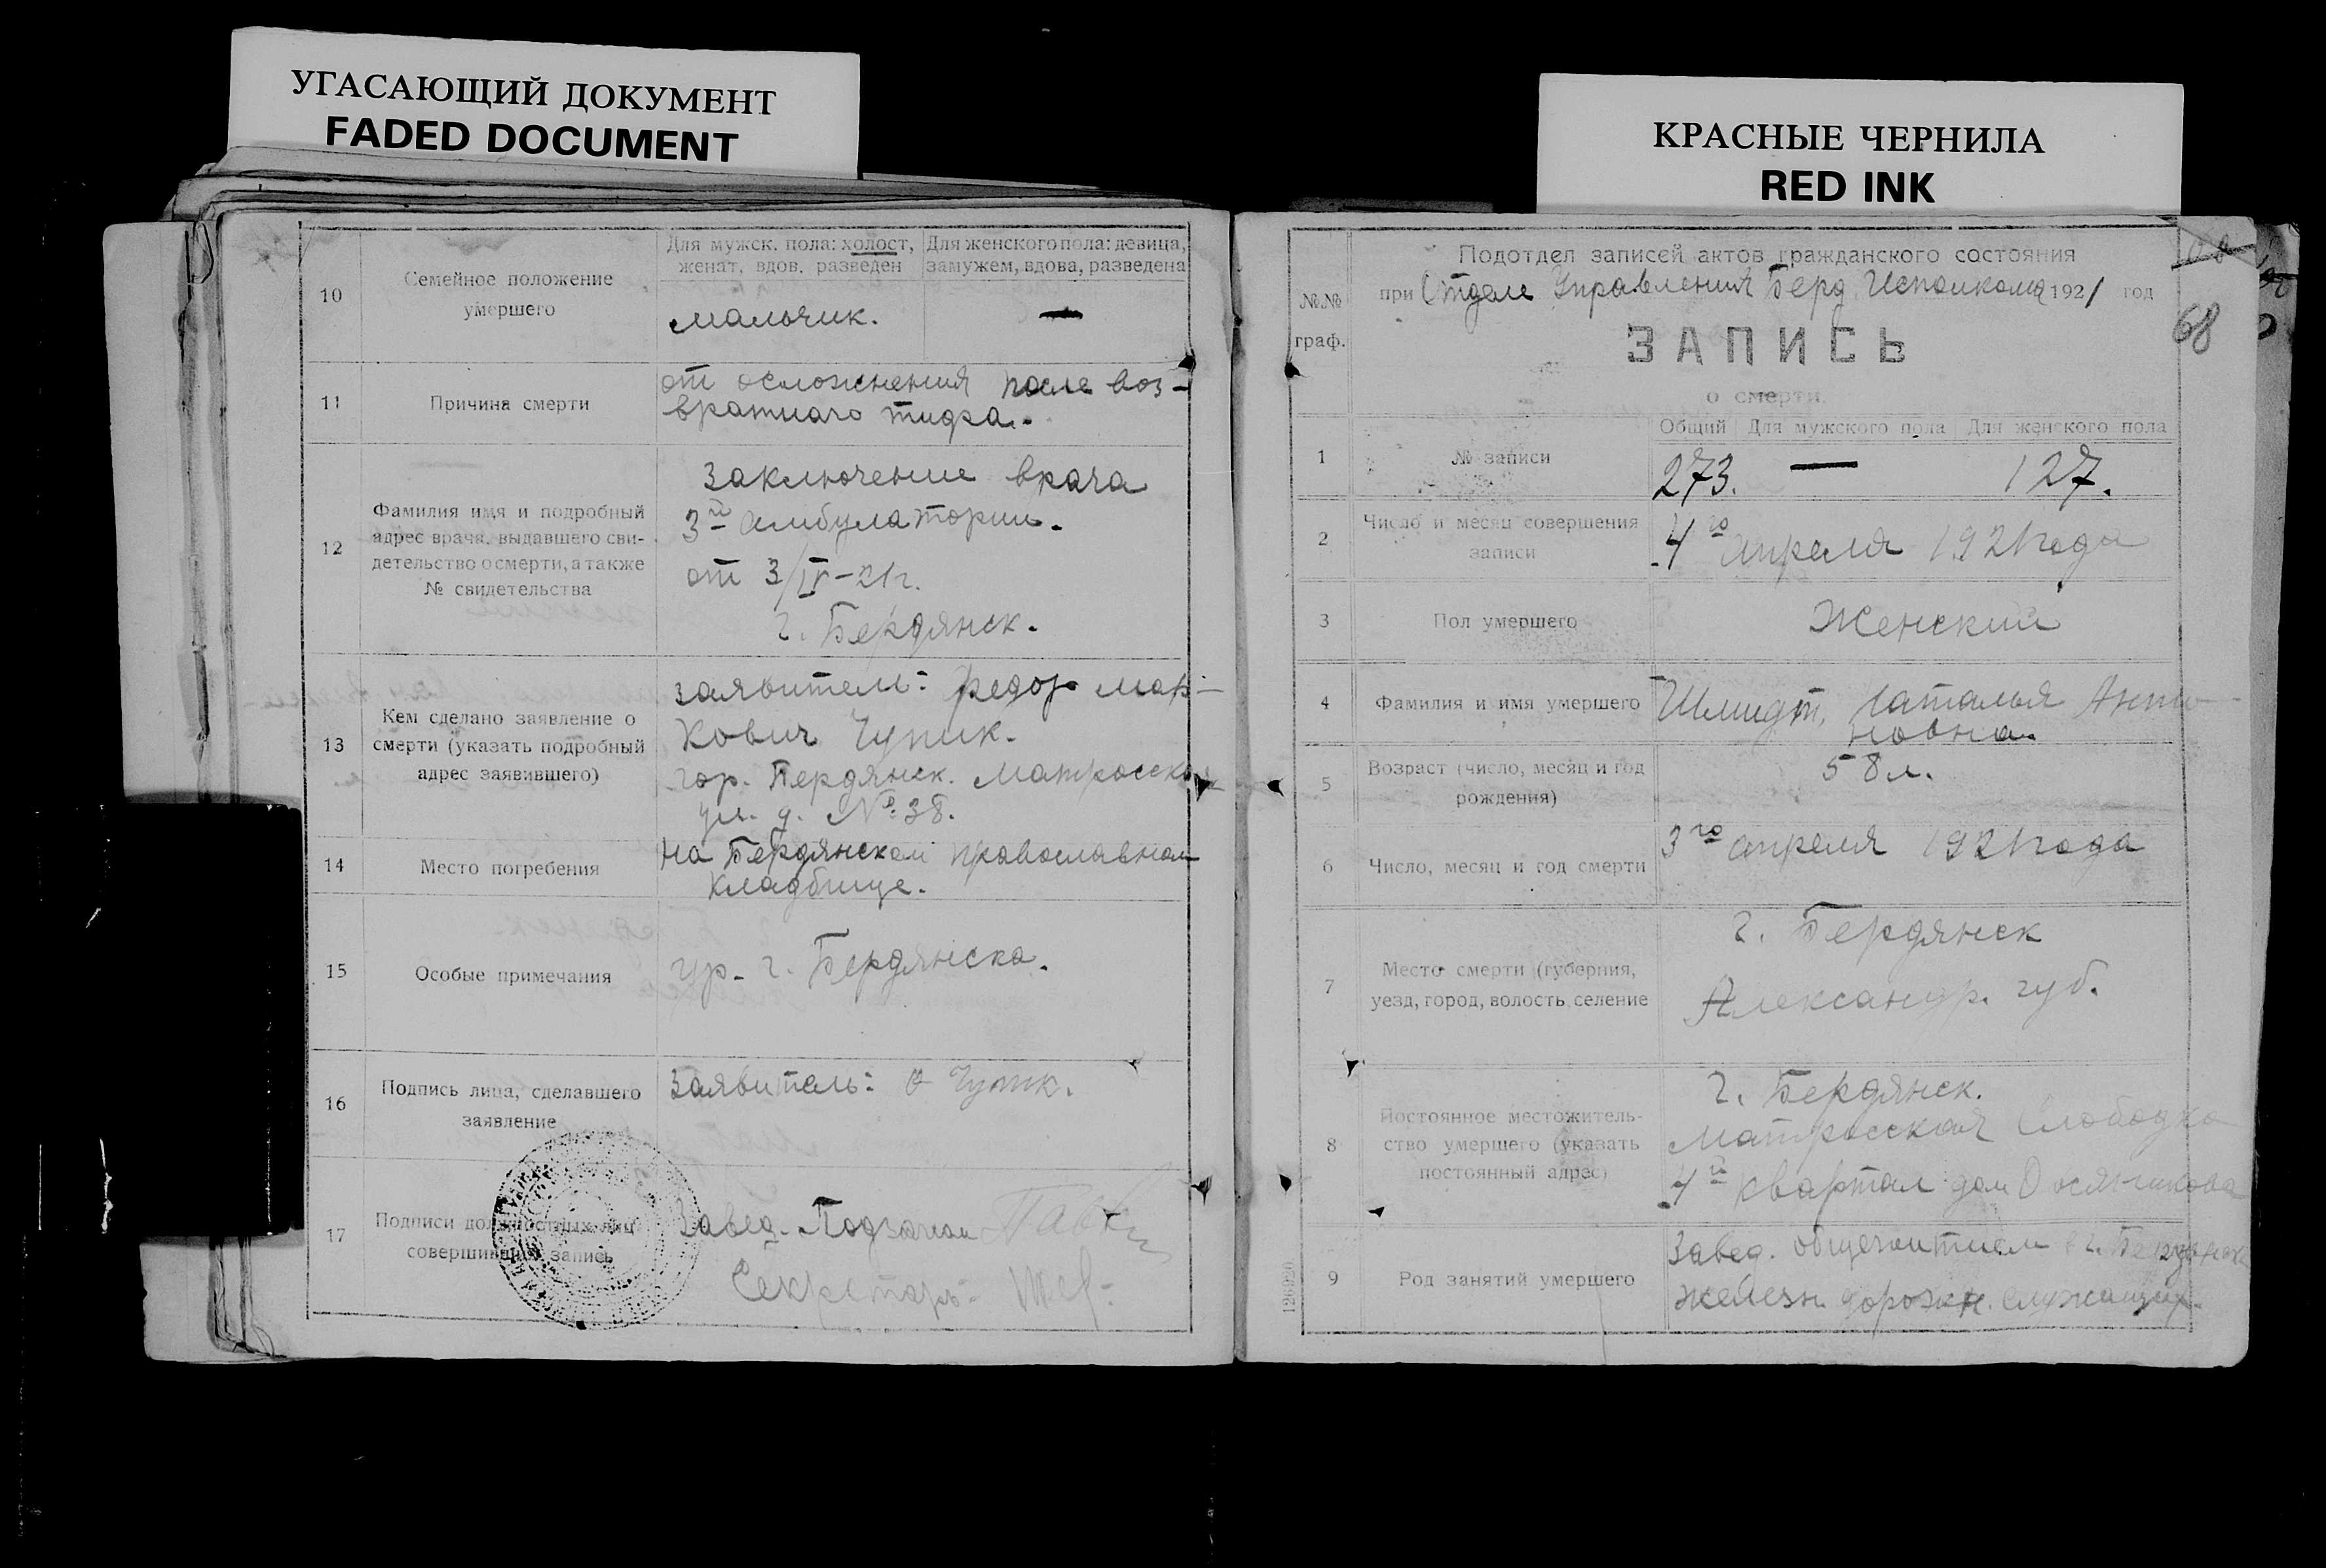 УГАСАЮЩИЙ ДОКУМЕНТ
FADED DOCUMENT
10
Семейное положение
умершего
Для мужск. пола: холост,
женат, вдов, разведен
Для женского пола: девица,
замужем, вдова, разведена
мальчик.
—
11
Причина смерти
от осложнения после воз-
вратнаго тифа.
12
Фамилия имя и подробный
адрес врача, выдавшего сви-
детельство о смерти, а также
№ свидетельства
Заключение врача
3й амбулатории.
от 3/IV-21г.
г. Бердянск.
13
Кем сделано заявление о
смерти (указать подробный
адрес заявившего)
заявитель: Федор Мар-
кович Чупик.
гор. Бердянск. Матросская
ул. д. № 38.
14
Место погребения
на Бердянском православном
кладбище.
15
Особые примечания
гр. г. Бердянска.
16
Подпись лица, сделавшего
заявление
Заявитель: Чупик.
17
Подписи должностных лиц
совершивших запись
Завед. Подзагсом
Секретарь:
КРАСНЫЕ ЧЕРНИЛА
RED INK
68
№№
граф.
Подотдел записей актов гражданского состояния
при Отделе Управления Берд. Исполкома 1921 год
ЗАПИСЬ
о смерти.
1
№ записи
Общий Для мужского пола Для женского пола
273. — 127.
2
Число и месяц совершения
записи
4го апреля 1921 года
3
Пол умершего
Женский
4
Фамилия и имя умершего
Шмидт, Наталья Анто-
новна.
5
Возраст (число, месяц и год
рождения)
58 л.
6
Число, месяц и год смерти
3го апреля 1921 года
7
Место смерти (губерния,
уезд, город, волость, селение
г. Бердянск
Александр. губ.
8
Постоянное местожитель-
ство умершего (указать
постоянный адрес)
г. Бердянск.
Матросская Слободка
4й квартал дом Овсянникова
9
Род занятий умершего
Завед. общежитием в г. Бердянске
железн. дорожн. служащих.
126920